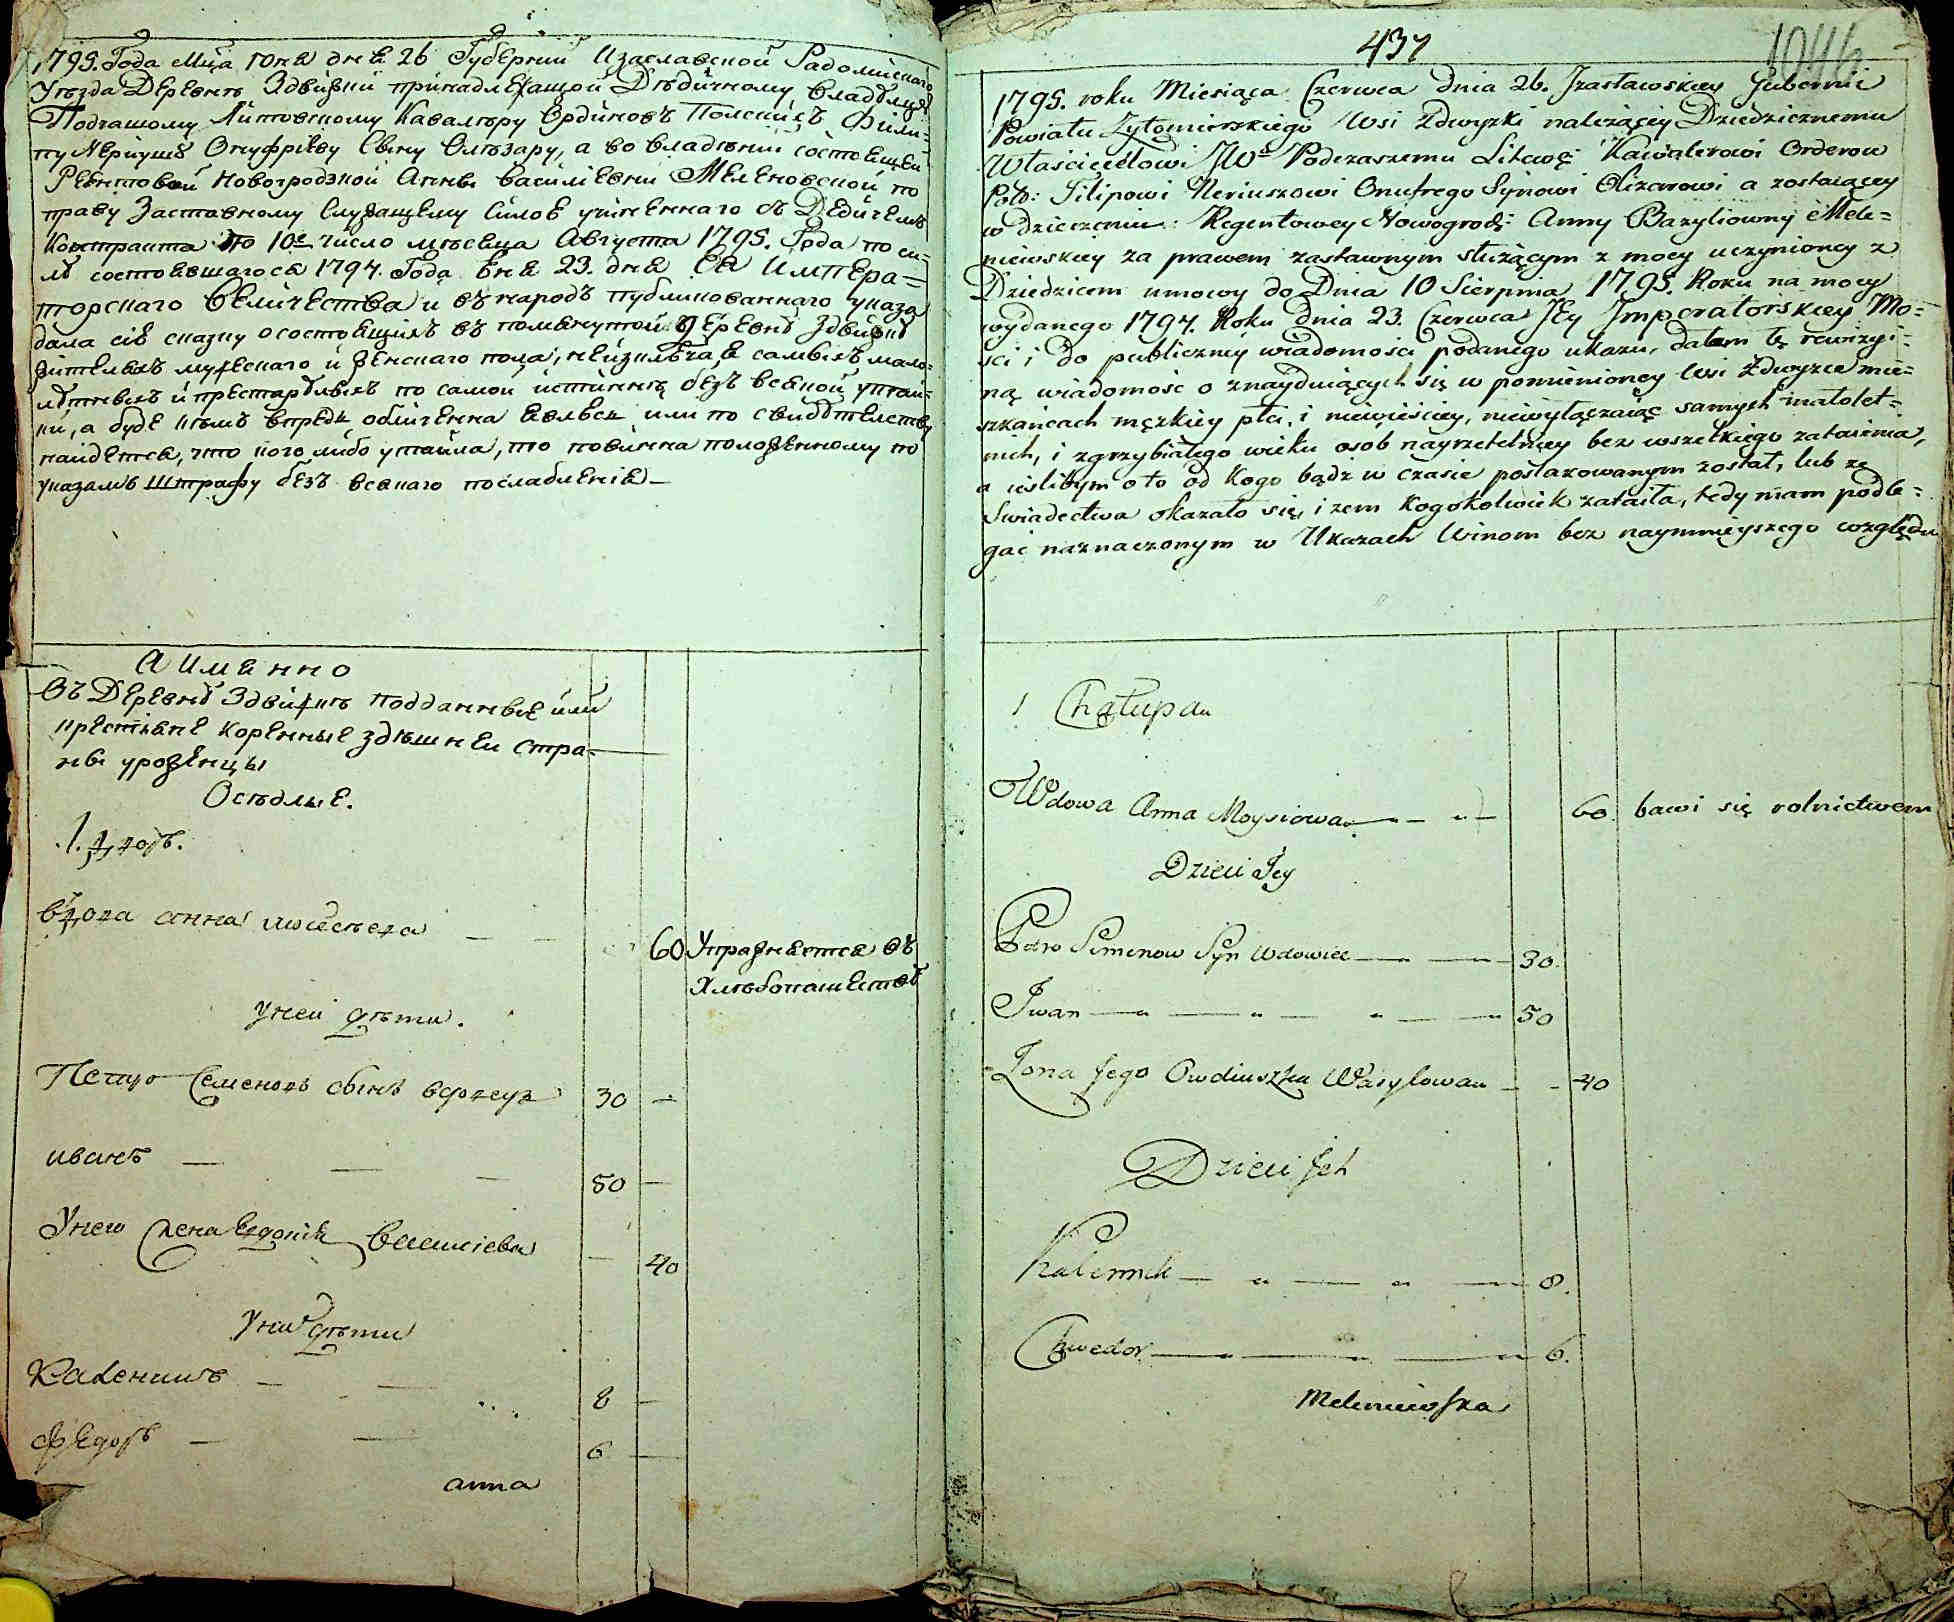 1795. Года Мца Іюня дня 26 Губерніи Изаславской Радомискаго
Уѣзда Деревнѣ Здвижки принадлежащой Дѣдичному владѣлцу
Подчашому Литовскому Кавалѣру Ординовъ Полскихъ Фили-
пу Нериушъ Онуфріеву Сыну Олѣзару, а во владѣніи состоящей
Реентовой Новогродзкой Анны Василіевни Меленѣвской по
праву Заставному Служащему силов учиненнаго съ Дедичемъ
Контракта по 10е число мѣсеца Августа 1795. Года по си-
лѣ состоявшагося 1794. Года Юня 23. дня Ея Импера=
торскаго Величества и въ народъ публикованнаго указа
дала сію сказку о состоящихъ въ помянутой Деревнѣ Здвижкѣ
жителяхъ мужескаго и женскаго пола, неизключая самыхъ мало-
лѣтныхъ и престарѣлыхъ по самой истиннѣ безъ всякой утай-
ки, а буде кѣмъ впредь обличенна явлюсь или по свидѣтелству
найдется, что кого либо утаила, то повинна положенному по
указамъ Штрафу безъ всякаго послабленія —
А имянно
Въ Деревнѣ Здвижкѣ подданные или
крестіяне коренные здѣшней стра-
ны уроженцы
Осѣдлые.
1. дворъ.
вдова анна моисѣева — — 60 Упражняется въ
Хлѣбопашествѣ
У неи дѣти.
Петро Семеновъ сынъ вдовецъ 30 —
иванъ — — — 50 —
У него жена Евдокія Василіева — 40
У них дѣти
Каленикъ — — 8 —
Федоръ — — 6 —
анна
437
1046
1795. roku Miesiąca Czerwca dnia 26. Jzasławskiey Gubernii
Powiatu Żytomirskiego Wsi Zdwyzki należącey Dziedzicznemu
Właścicielowi JWo Podczaszemu Litwę: Kawalerowi Orderow
Pols: Filipowi Neriuszowi Onufrego Synowi Olizarowi a zostaiącey
w dzierżeniu: Regentowey Nowogrodz: Anny Bazyliowny Mele=
niewskiey za prawem zastawnym służącym z mocy uczynioney z
Dziedzicem umowy do Dnia 10 Sierpnia 1795. Roku na mocy
wydanego 1794. Roku Dnia 23. Czerwca Jey Imperatorskiey Mo=
ści i do publiczney wiadomości podanego ukazu, dałam tę rewizyi=
ną wiadomość o znayduiących się w pomienioney wsi Zdwyzce mie=
szkańcach męzkiey płci, i niewieściey, niewyłączaiąc samych małolet=
nich, i zgrzybiałego wieku osob nayrzetelniey bez wszelkiego zataienia,
a ieslibym o to od kogo bądz w czasie poszlakowanym został, lub ze
Swiadectwa okazało się, i zem kogokolwiek zataiła, tedy mam podle=
gać naznaczonym w Ukazach Winom bez naymnieyszego względu
1 Chałupa
Wdowa Anna Moysiowa — — 60. bawi się rolnictwem
Dzieci Jey
Petro Semenow Syn Wdowiec — — 30.
Jwan — — — 50
Zona Jego Owdiuszka Wasylowa — — 40
Dzieci Jch
Kalennik — — — 8.
Chwedor — — — 6.
Meleniewska